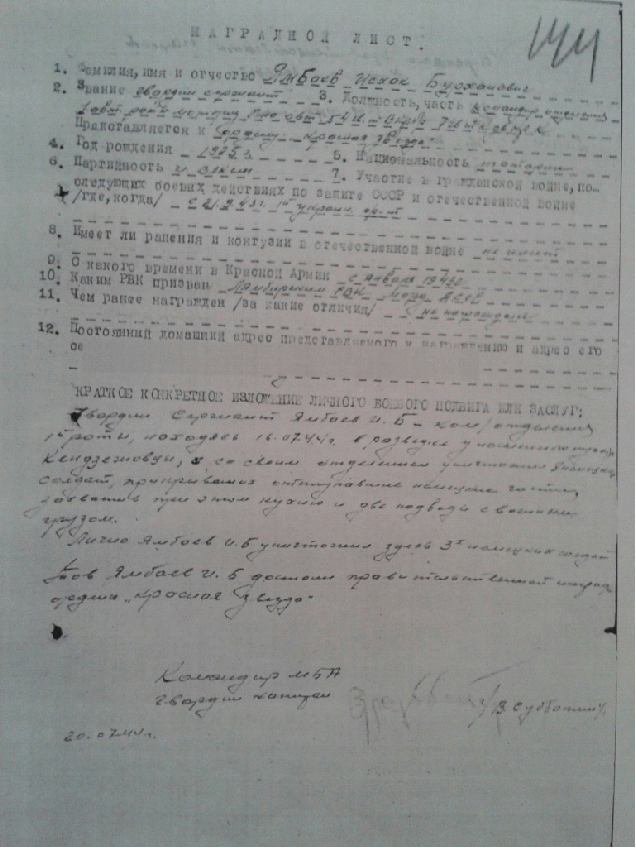 НАГРАДНОЙ ЛИСТ.
144
1. Фамилия, имя и отчество Ямбаев Исхок Бурханович
2. Звание гвардии сержант 3. Должность, часть командир отделения
Представляется к ордену "Красная Звезда"
4. Год рождения 1925 г. 5. Национальность татарин
6. Партийность чл. ВЛКСМ 7. Участие в гражданской войне, по-
следующих боевых действиях по защите СССР и отечественной войне
/где, когда/ с 21.2.43г. 1й украин. фронт
8. Имеет ли ранения и контузии в отечественной войне не имеет
9. С какого времени в Красной Армии с января 1943г.
10. Каким РВК призван РВК Морд. АССР
11. Чем ранее награжден /за какие отличия/ не награжден
12. Постоянный домашний адрес представляемого к награждению и адрес его
се
КРАТКОЕ КОНКРЕТНОЕ ИЗЛОЖЕНИЕ ЛИЧНОГО БОЕВОГО ПОДВИГА ИЛИ ЗАСЛУГ:
Гвардии Сержант Ямбаев И.Б – ком/отделения
1й роты, находясь 16.07.44г. в разведке у населенного пункта
со своим отделением уничтожил
солдат, прикрывавших отступавшие немецкие части,
захватив при этом кухню и две подводы с военным
грузом.
Лично Ямбаев И.Б уничтожил здесь 3х немецких солдат
Тов Ямбаев И.Б достоин правительственной награды
ордена "Красная Звезда"
Командир МБА
гвардии капитан /В. Субботин/
20.07.44г.